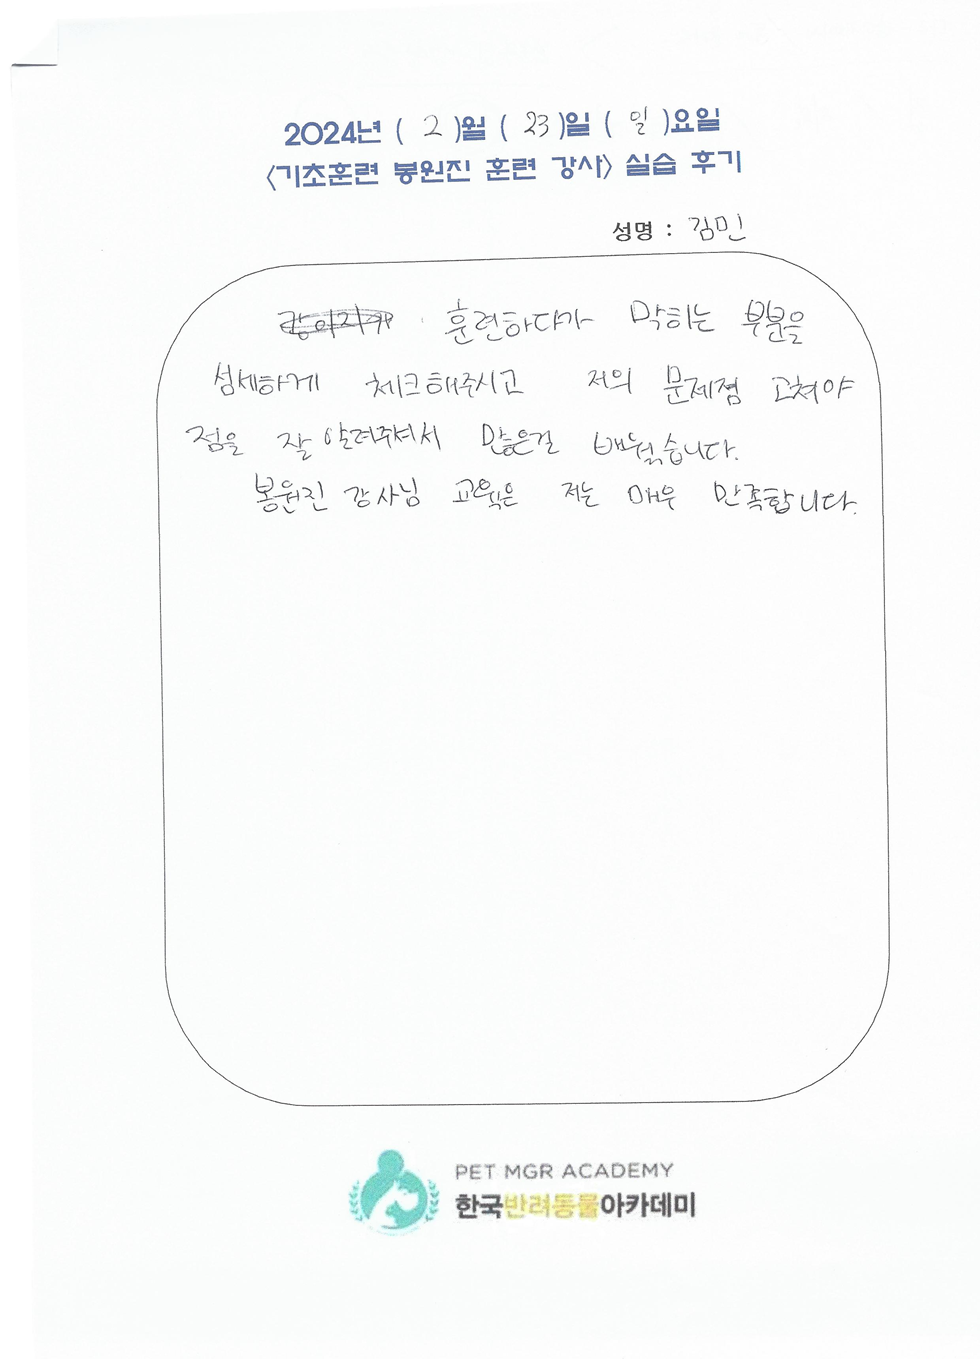 2024년 ( 2 )월 ( 23 )일 ( 일 )요일
<기초훈련 봉원진 훈련 강사> 실습 후기
성명 : 김민
훈련하다가 막히는 부분을
섬세하게 체크해주시고 저의 문제점 고쳐야
점을 잘 알려주셔서 많은걸 배웠습니다.
봉원진 강사님 교육은 저는 매우 만족합니다.
PET MGR ACADEMY
한국반려동물아카데미